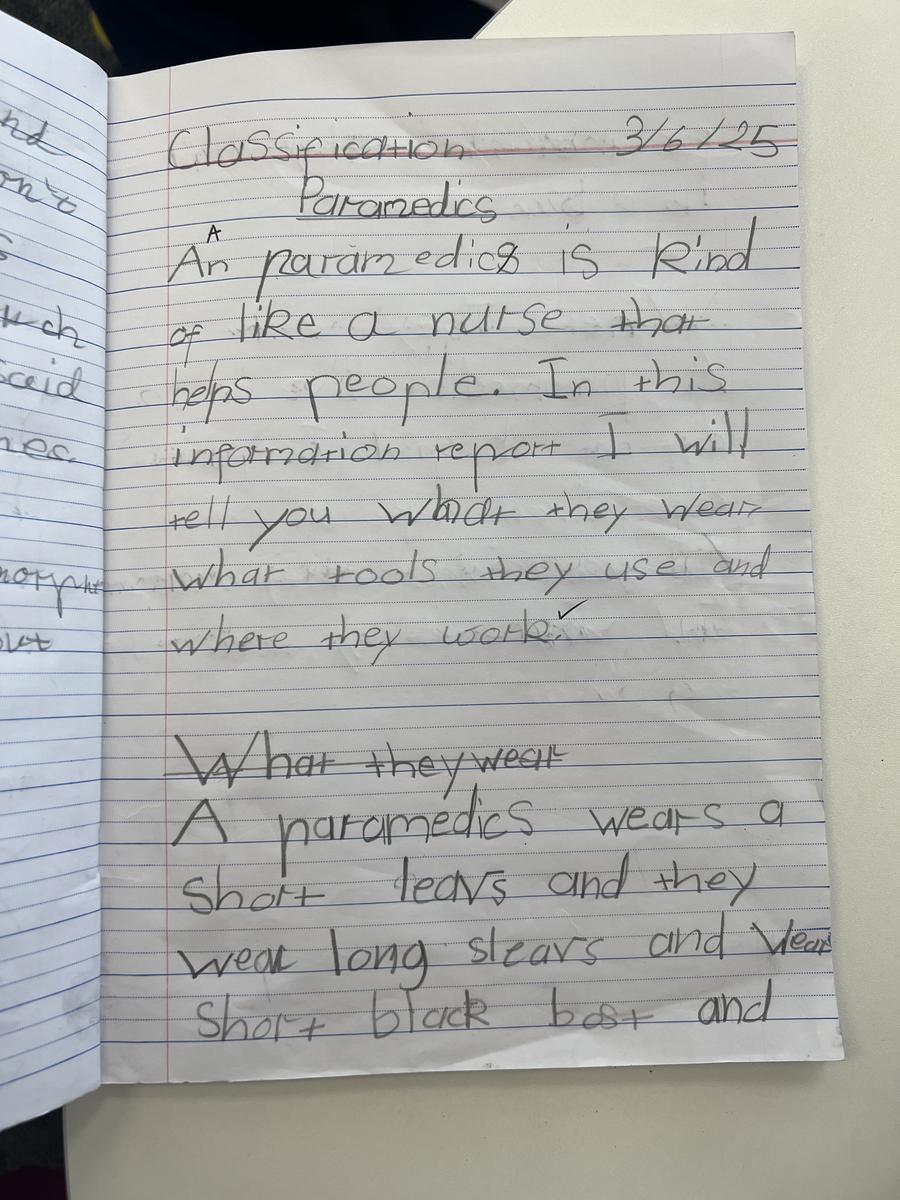 nd
on't
s
uch
said
nes.
norph
out
Classification 3/6/25
Paramedics
A
An paramedics is kind
of like a nurse that
helps people. In this
information report I will
tell you what they wear
what tools they use and
where they work.
What they wear
A paramedics wears a
short leavs and they
wear long sleavs and wear
short black bost and